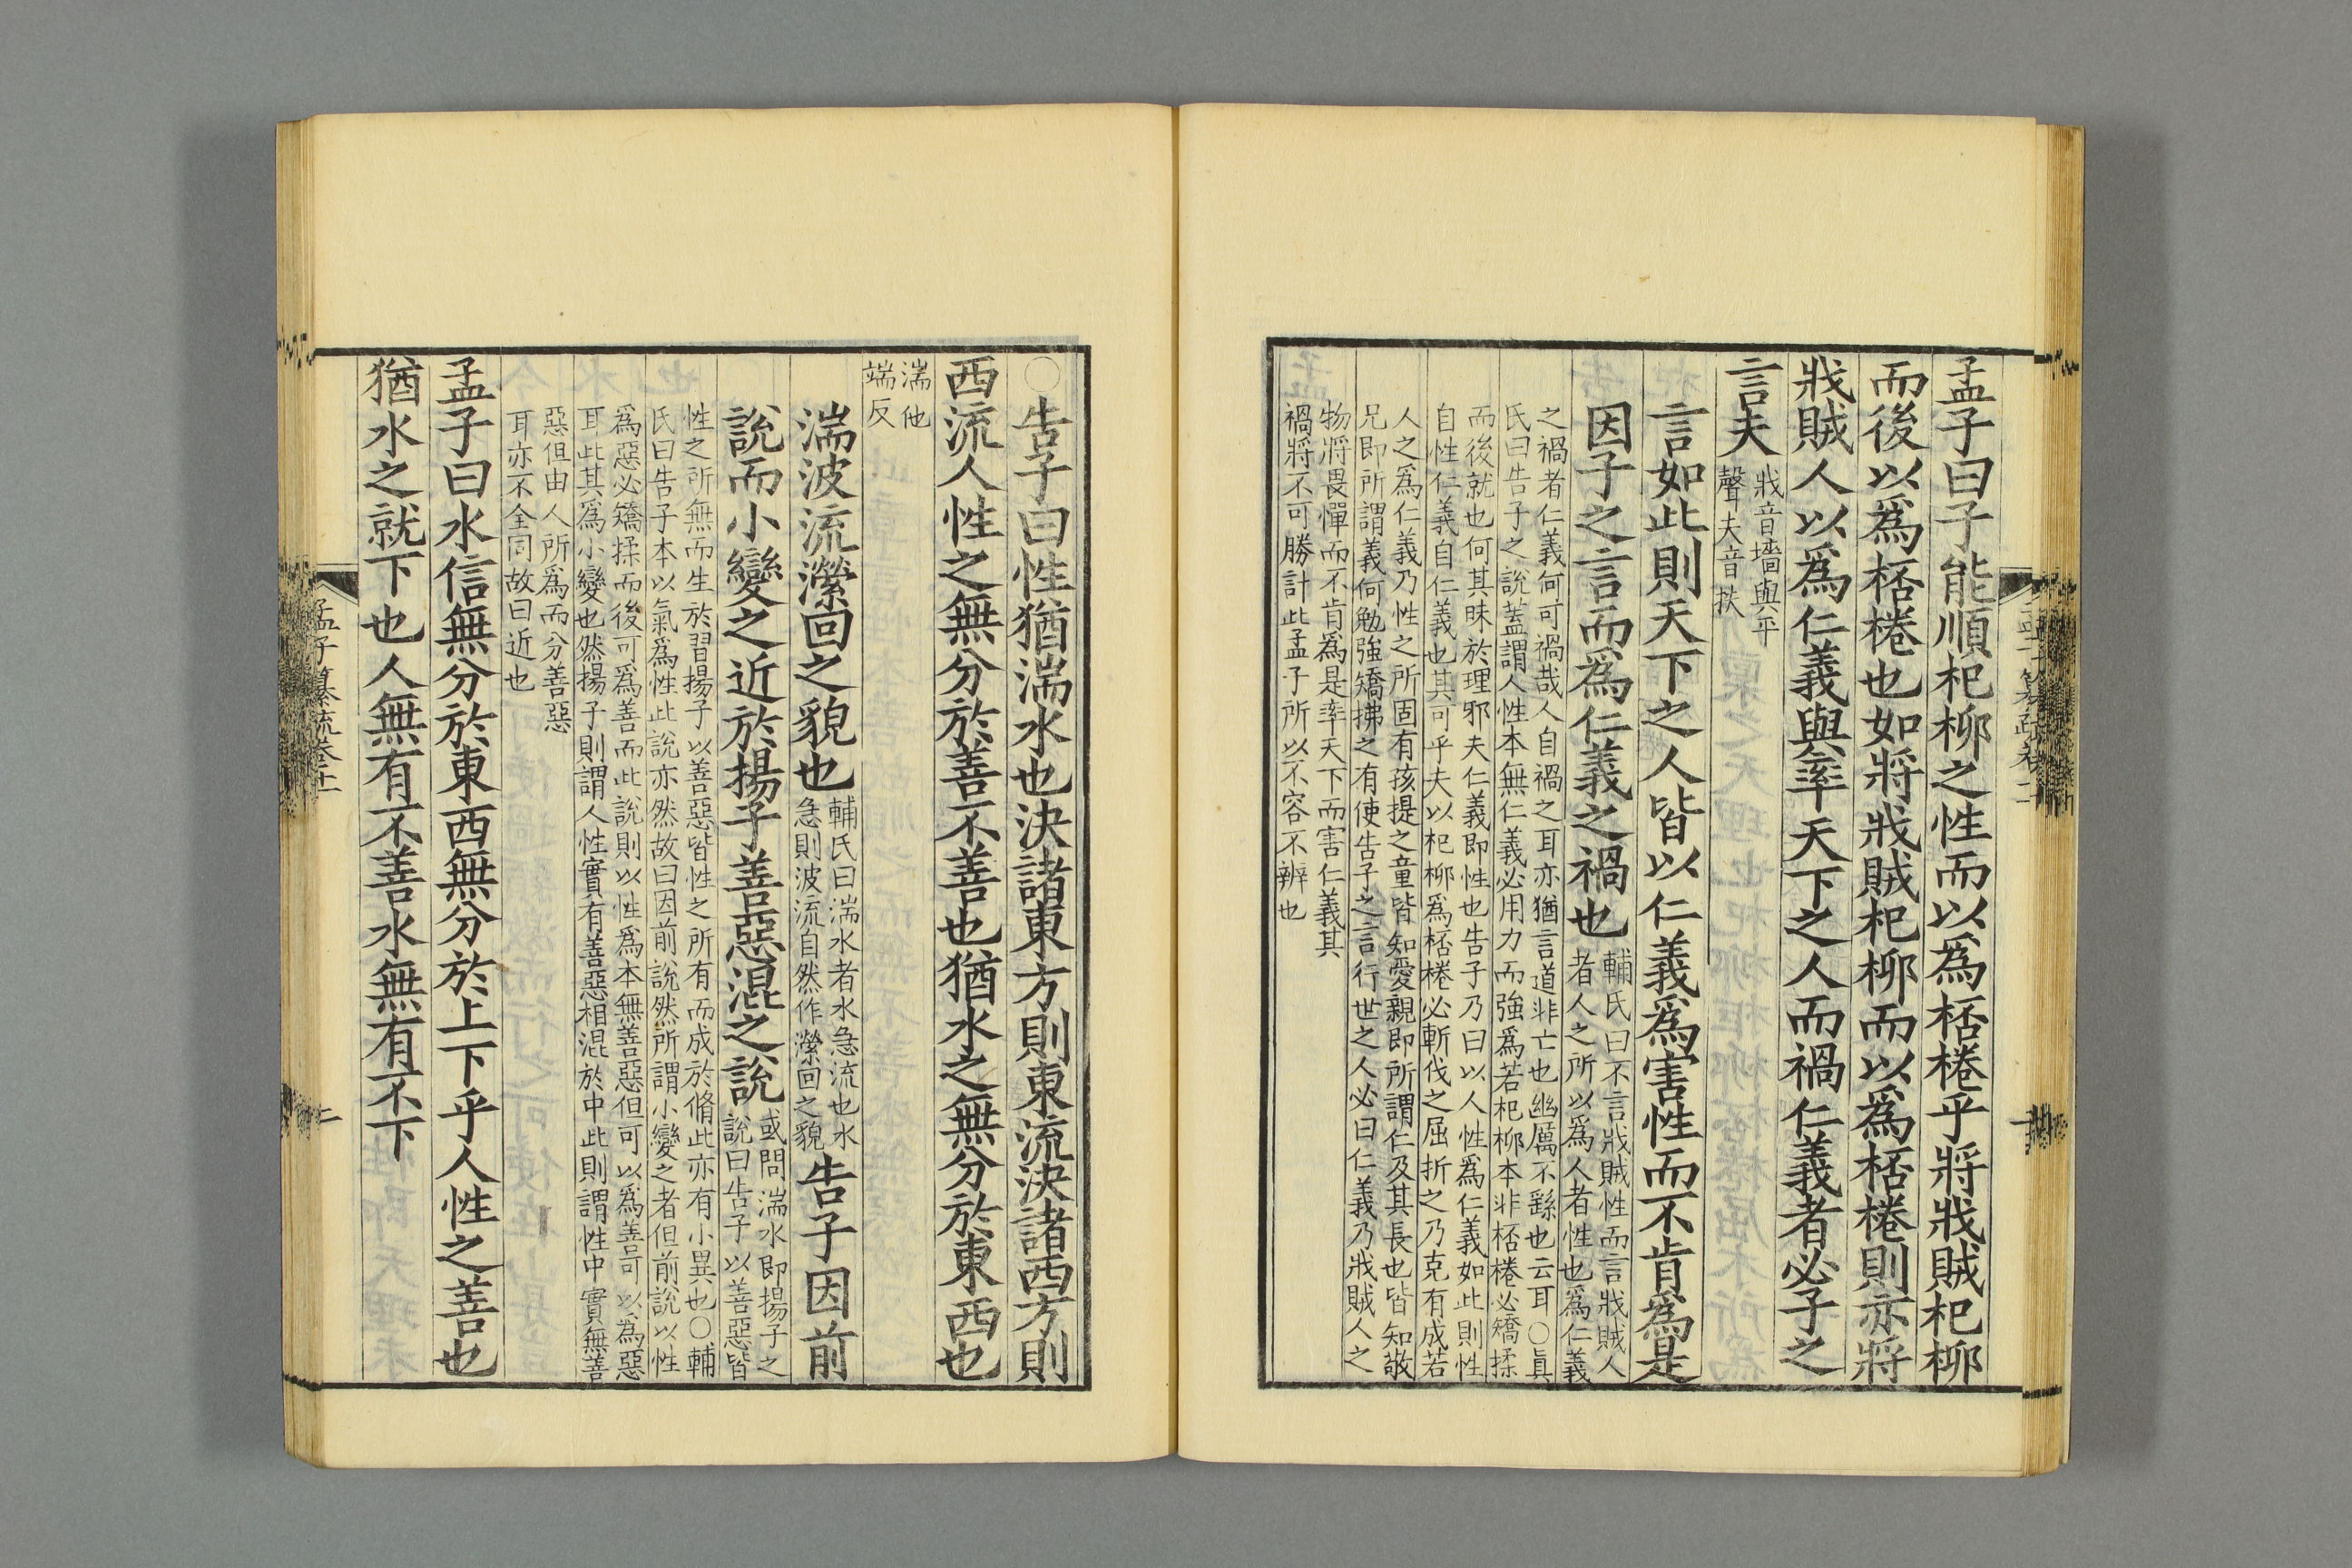 孟子曰子能順杞柳之性而以爲桮棬乎將戕賊杞柳
而後以爲桮棬也如將戕賊杞柳而以爲桮棬則亦將
戕賊人以爲仁義與率天下之人而禍仁義者必子之
言夫
戕音墻與平
聲夫音扶
言如此則天下之人皆以仁義爲害性而不肯爲是
因子之言而爲仁義之禍也
輔氏曰不言戕賊性而言戕賊人
者人之所以爲人者性也爲仁義
之禍者仁義何可禍哉人自禍之耳亦猶言道非亡也幽厲不繇也云耳○眞
氏曰告子之說蓋謂人性本無仁義必用力而強爲若杞柳本非桮棬必矯揉
而後就也何其昧於理邪夫仁義即性也告子乃曰以人性爲仁義如此則性
自性仁義自仁義也其可乎夫以杞柳爲桮棬必斬伐之屈折之乃克有成若
人之爲仁義乃性之所固有孩提之童皆知愛親即所謂仁及其長也皆知敬
兄即所謂義何勉強矯拂之有使告子之言行世之人必曰仁義乃戕賊人之
物將畏憚而不肯爲是率天下而害仁義其
禍將不可勝計此孟子所以不容不辨也
○告子曰性猶湍水也決諸東方則東流決諸西方則
西流人性之無分於善不善也猶水之無分於東西也
湍他
端反
湍波流瀠回之貌也
輔氏曰湍水者水急流也水
急則波流自然作瀠回之貌
告子因前
說而小變之近於揚子善惡混之說
或問湍水即揚子之
說曰告子以善惡皆
性之所無而生於習揚子以善惡皆性之所有而成於脩此亦有小異也○輔
氏曰告子本以氣爲性此說亦然故曰因前說然所謂小變之者但前說以性
爲惡必矯揉而後可爲善而此說則以性爲本無善惡但可以爲善可以爲惡
耳此其爲小變也然揚子則謂人性實有善惡相混於中此則謂性中實無善
惡但由人所爲而分善惡
耳亦不全同故曰近也
孟子曰水信無分於東西無分於上下乎人性之善也
猶水之就下也人無有不善水無有不下
孟子纂疏卷十一
二